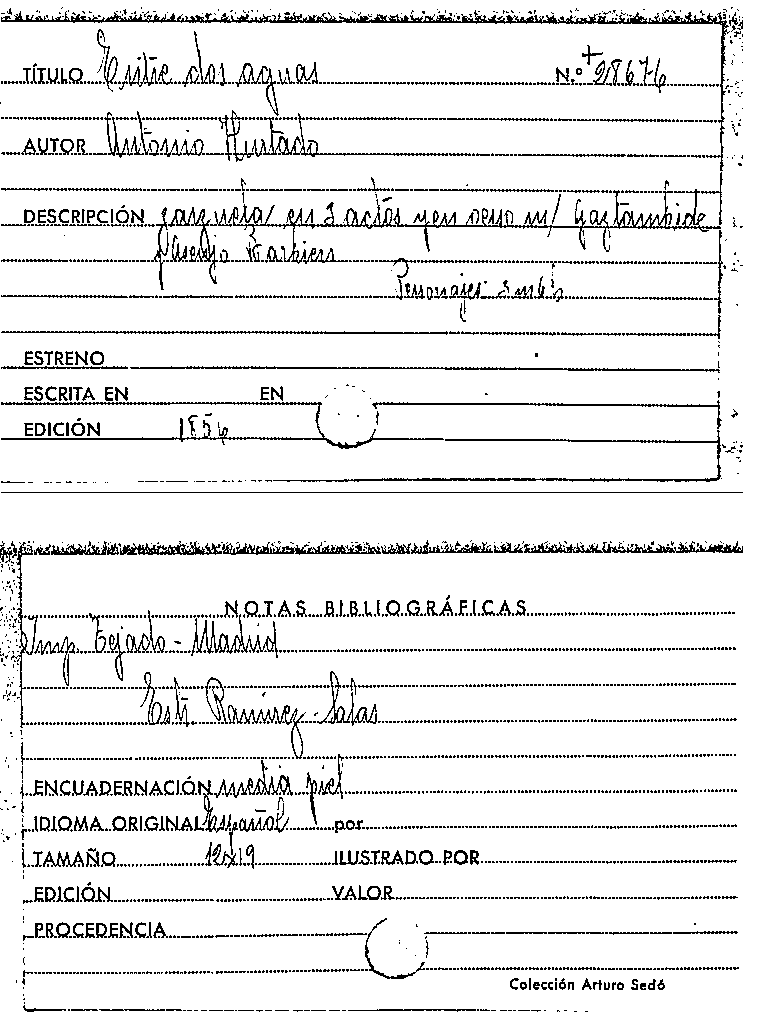 TÍTULO Entre dos aguas N.º +28676
AUTOR Antonio Hurtado
DESCRIPCIÓN zarzuela en 3 actos y en verso m/ Gaztambide
y Asenjo Barbieri
Personajes: 3 m 6 h
ESTRENO
ESCRITA EN EN
EDICIÓN 1856
NOTAS BIBLIOGRÁFICAS
Imp. Tejado - Madrid
Estr. Ramírez - Salas
ENCUADERNACIÓN media piel
IDIOMA ORIGINAL Español por
TAMAÑO 12x19 ILUSTRADO POR
EDICIÓN VALOR
PROCEDENCIA
Colección Arturo Sedó